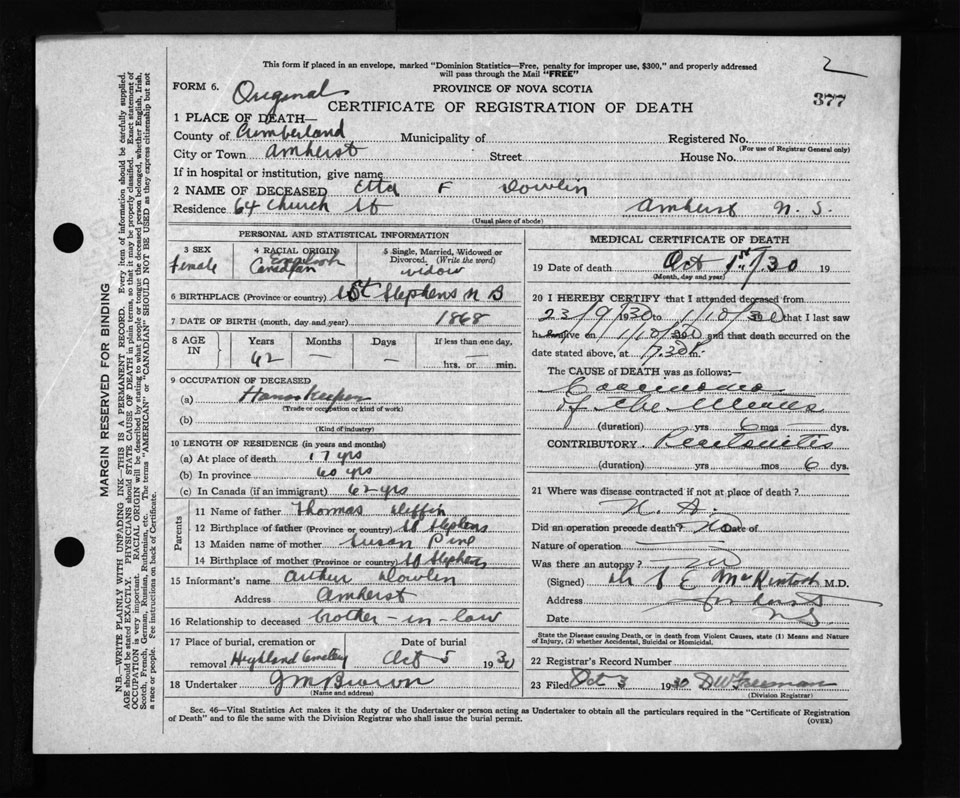 This form if placed in an envelope, marked "Dominion Statistics—Free, penalty for improper use, $300," and properly addressed
will pass through the Mail "FREE"
2
FORM 6. Original PROVINCE OF NOVA SCOTIA
377
CERTIFICATE OF REGISTRATION OF DEATH
1 PLACE OF DEATH—
County of Cumberland Municipality of Registered No.
(For use of Registrar General only)
City or Town Amherst Street House No.
If in hospital or institution, give name
2 NAME OF DECEASED Etta F Dowlin
Residence 64 Church St Amherst N. S.
(Usual place of abode)
PERSONAL AND STATISTICAL INFORMATION
3 SEX 4 RACIAL ORIGIN 5 Single, Married, Widowed or
Divorced, (Write the word)
female English
Canadian widow
6 BIRTHPLACE (Province or country) St Stephens N B
7 DATE OF BIRTH (month, day and year) 1868
8 AGE IN Years Months Days If less than one day,
62 — — hrs. or min.
9 OCCUPATION OF DECEASED
(a) Housekeeper
(Trade or occupation or kind of work)
(b)
(Kind of industry)
10 LENGTH OF RESIDENCE (in years and months)
(a) At place of death 17 yrs
(b) In province 60 yrs
(c) In Canada (if an immigrant) 62 yrs
Parents
11 Name of father Thomas
12 Birthplace of father (Province or country) St Stephens
13 Maiden name of mother Susan Pine
14 Birthplace of mother (Province or country) St Stephens
15 Informant's name Arthur Dowlin
Address Amherst
16 Relationship to deceased brother-in-law
17 Place of burial, cremation or Date of burial
removal Highland Cemetery Oct 5 1930
18 Undertaker J M Brown
(Name and address)
MEDICAL CERTIFICATE OF DEATH
19 Date of death Oct 1st/30 19
(Month, day and year)
20 I HEREBY CERTIFY that I attended deceased from
23/9/1930 to 1/10/30 that I last saw
h alive on 1/10/30 and that death occurred on the
date stated above, at 7.30 m.
The CAUSE of DEATH was as follows:—
Carcinoma
of the Uterus
(duration) yrs 6 mos dys.
CONTRIBUTORY Peritonitis
(duration) yrs mos 6 dys.
21 Where was disease contracted if not at place of death?
Did an operation precede death? No Date of
Nature of operation
Was there an autopsy? No
(Signed) Dr E McKintosh M.D.
Address Amherst
Date NS
State the Disease causing Death, or in death from Violent Causes, state (1) Means and Nature
of Injury, (2) whether Accidental, Suicidal or Homicidal.
22 Registrar's Record Number
23 Filed Oct 3 1930 D W Freeman
(Division Registrar)
Sec. 46—Vital Statistics Act makes it the duty of the Undertaker or person acting as Undertaker to obtain all the particulars required in the "Certificate of Registration
of Death" and to file the same with the Division Registrar who shall issue the burial permit.
(OVER)
MARGIN RESERVED FOR BINDING
N.B.—WRITE PLAINLY WITH UNFADING INK—THIS IS A PERMANENT RECORD. Every item of information should be carefully supplied.
AGE should be stated EXACTLY. PHYSICIANS should STATE CAUSE OF DEATH in plain terms, so that it may be properly classified. Exact statement of
OCCUPATION is very important. RACIAL ORIGIN will be described by stating to what people or tongue the deceased person belonged, whether English, Irish,
Scotch, French, German, Russian, Ruthenian, etc. The terms "AMERICAN" or "CANADIAN" SHOULD NOT BE USED as they express citizenship but not
a race or people. See instructions on back of Certificate.